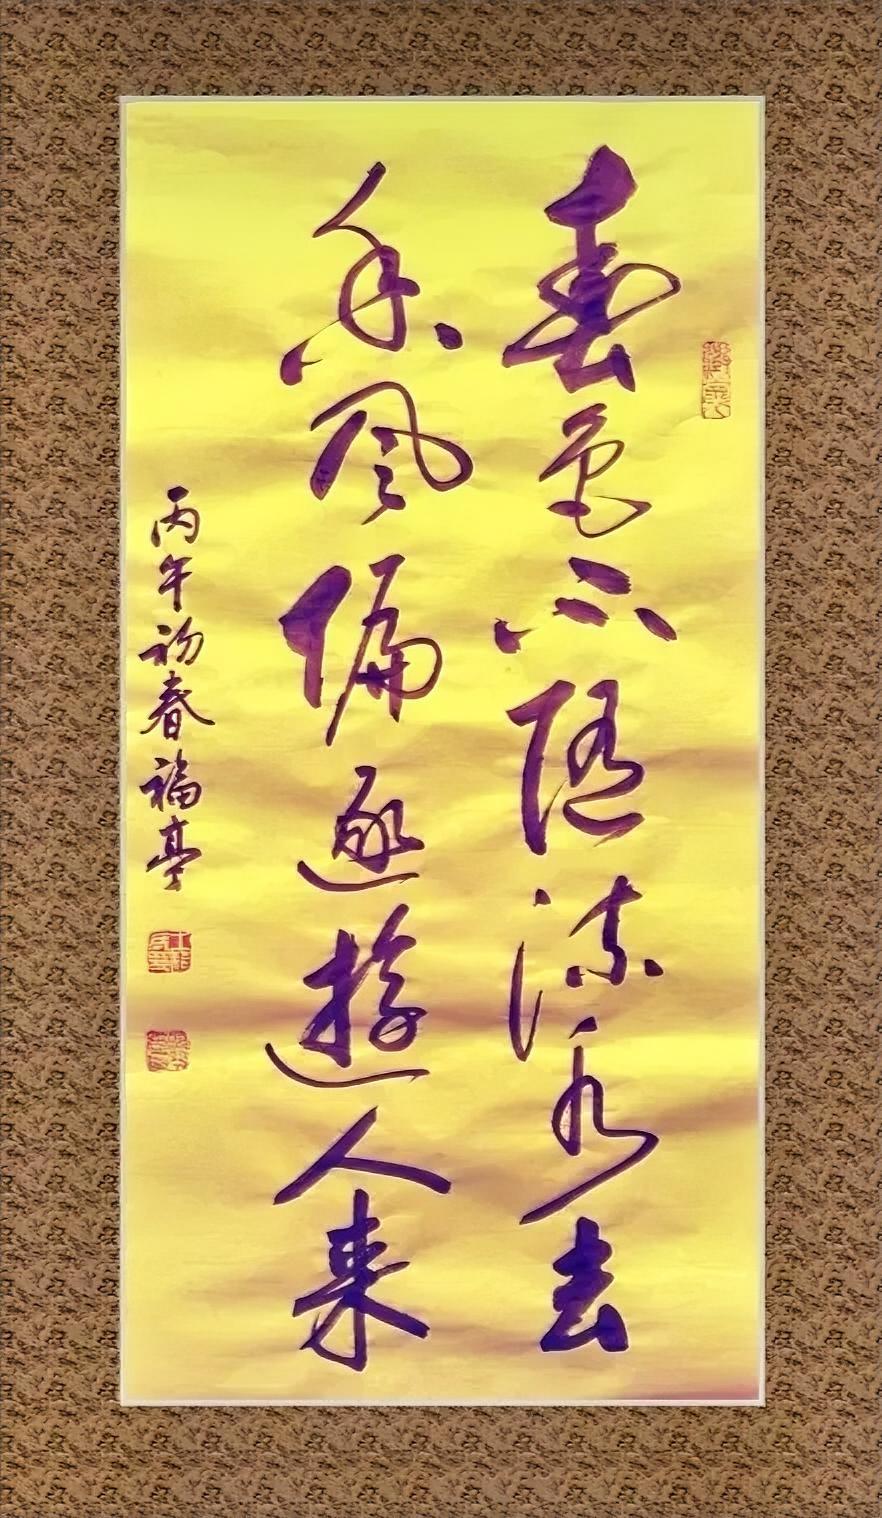 春色不随流水去
香风偏逐游人来
丙午初春福亭